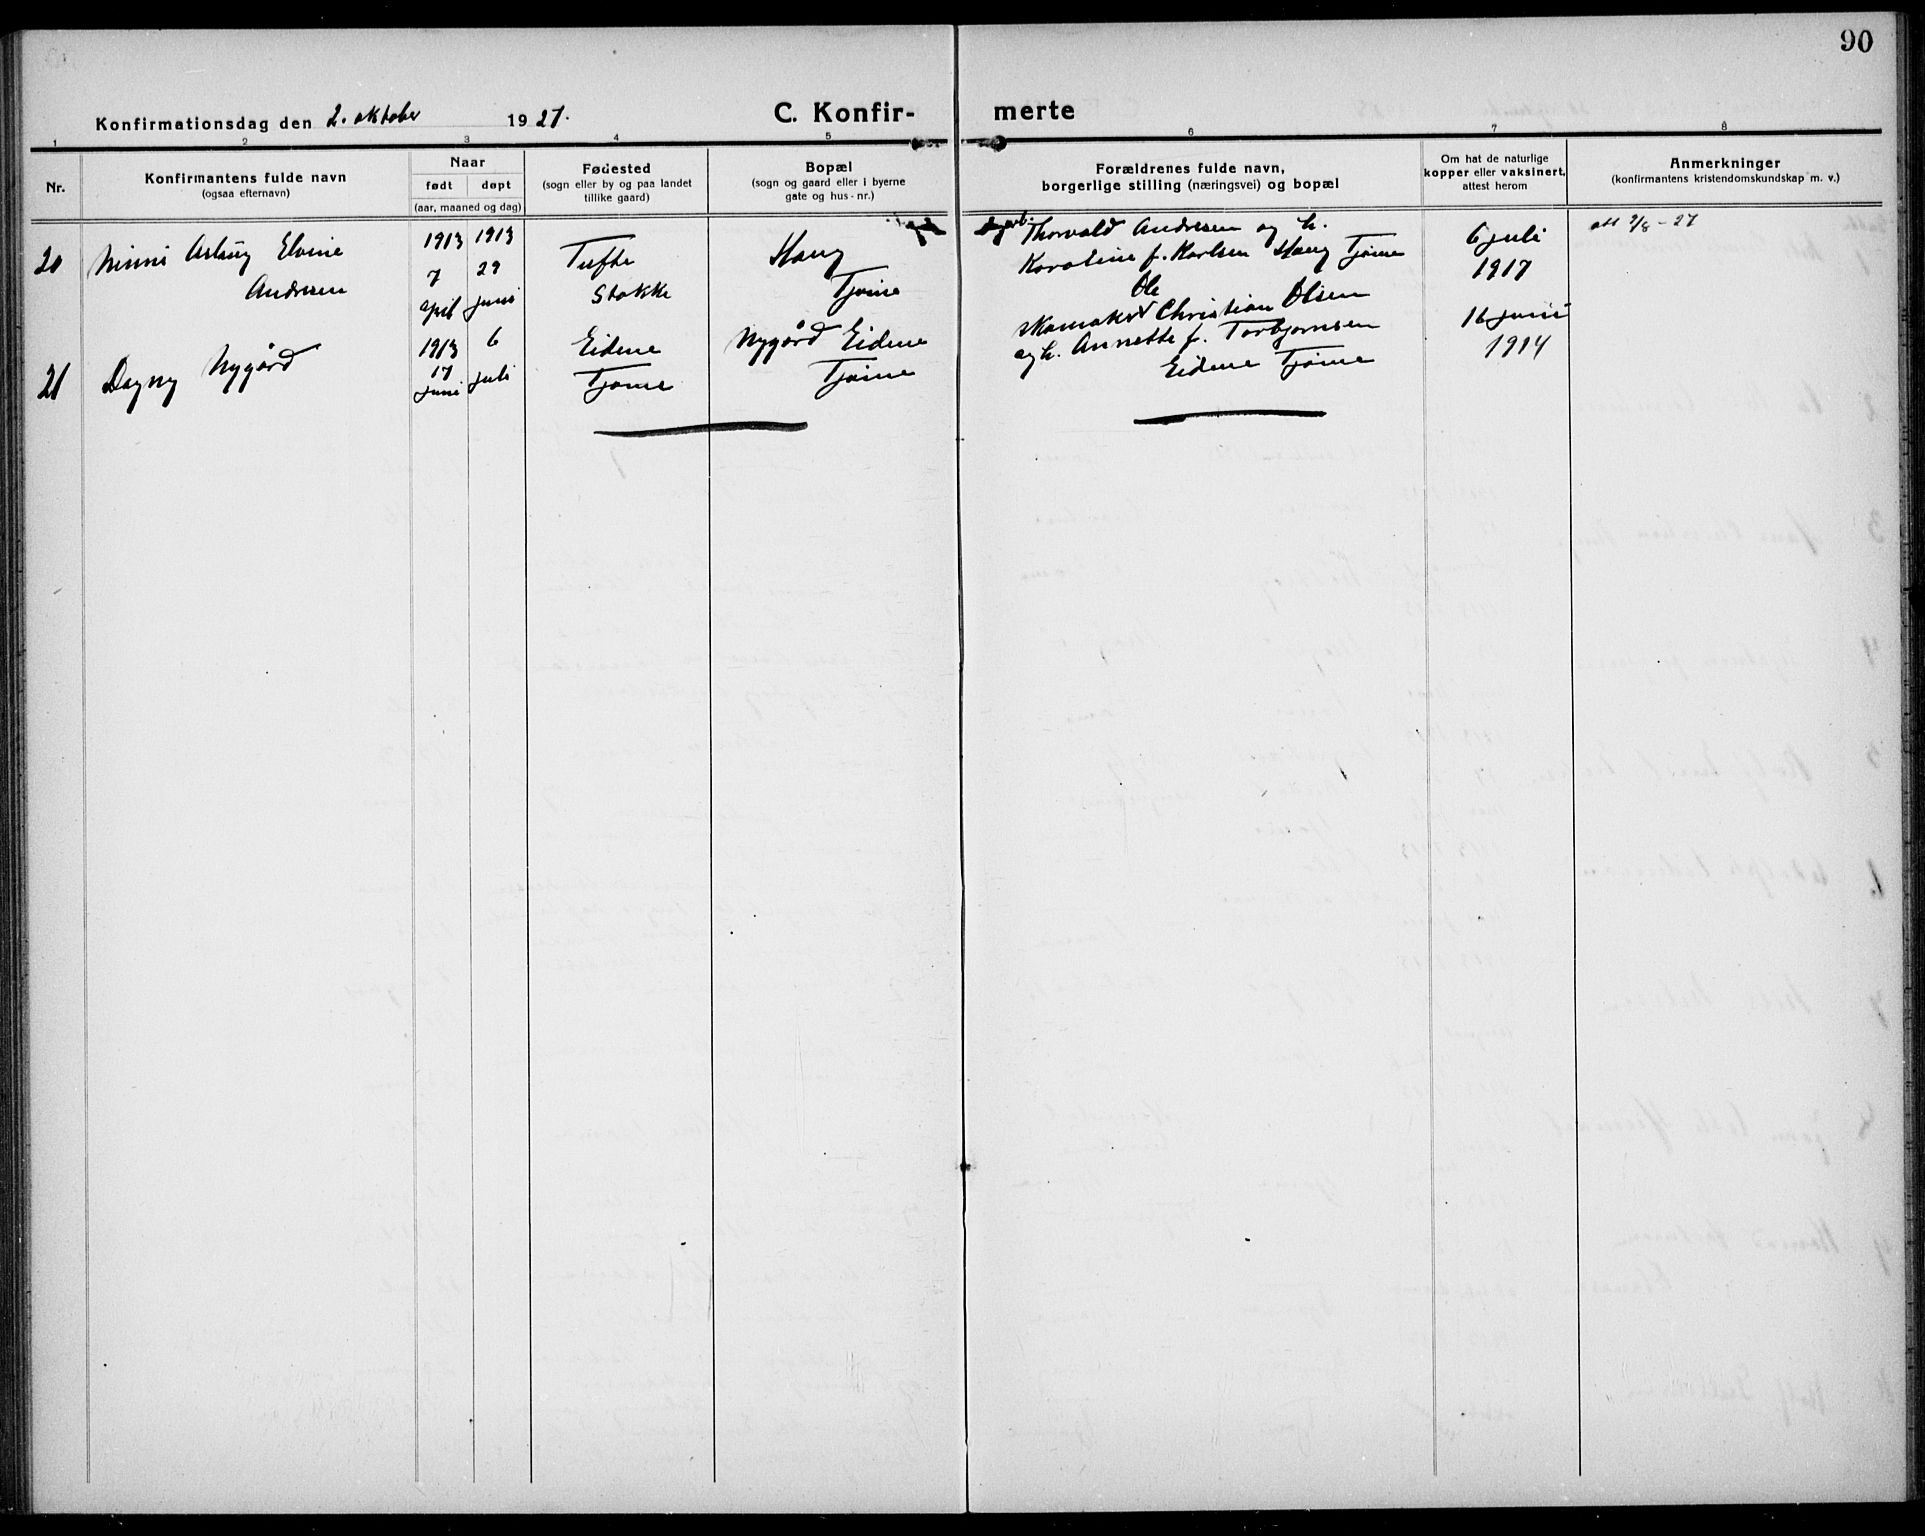 90
Konfirmationsdag den 2. oktober 1927.
C. Konfirmerte
1 2 3 4 5 6 7 8
Nr.
Konfirmantens fulde navn
(ogsaa efternavn)
Naar
født døpt
(aar, maaned og dag)
Fødested
(sogn eller by og paa landet
tillike gaard)
Bopæl
(sogn og gaard eller i byerne
gate og hus-nr.)
Forældrenes fulde navn,
borgerlige stilling (næringsvei) og bopæl
Om hat de naturlige
kopper eller vaksinert,
attest herom
Anmerkninger
(konfirmantens kristendomskundskap m. v.)
20
Ninni Aslaug Elvine
Andresen
1913
7
april
1913
29
juni
Tufte
Stokke
Haug
Tjøme
Thorvald Andresen og h.
Karoline f. Karlsen Haug Tjøme
6 juli
1917
att 9/8-27
21
Dagny Nygård
1913
17
juni
6
juli
Eidene
Tjøme
Nygård Eidene
Tjøme
Ole
skomaker Christian Olsen
og h. Annette f. Torbjørnsen
Eidene Tjøme
16 juni
1914